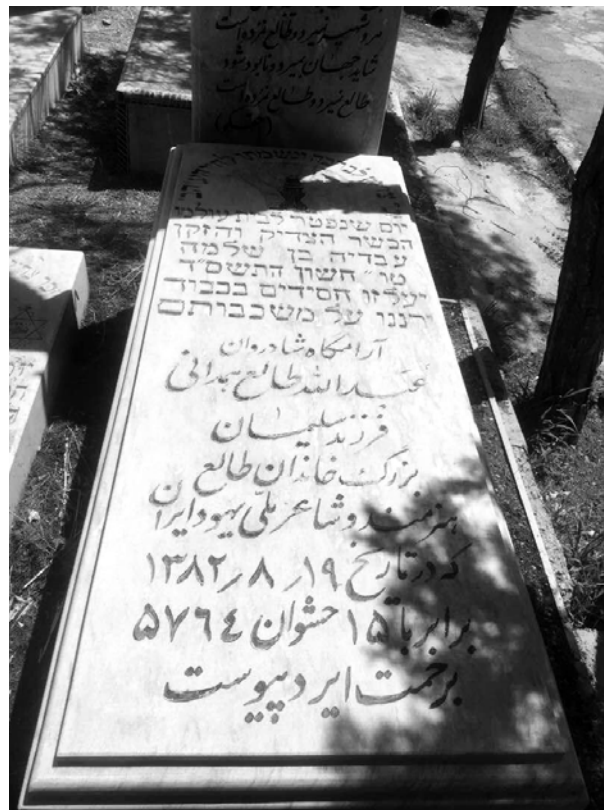 هر و شهید نمیرد و طالع نمرده است
شاید جهان بمیرد و نابود شود
طالع نمیرد و طالع نمرده است
יום שנפטר לבית עולמו
הכשר הצדיק והזקן
עבדיה בן שלמה
טו״ חשון התשס״ד
יעלזו חסידים בכבוד
ירננו על משכבותם
آرامگاه شادروان
عبدالله طالع همدانی
فرزند سلیمان
بزرگ خاندان طالع
هنرمند و شاعر ملی یهود ایران
که در تاریخ ۱۹٫ ۸٫ ۱۳۸۲
برابر با ۱۵ حشوان ۵۷٦٤
برحمت ایزد پیوست